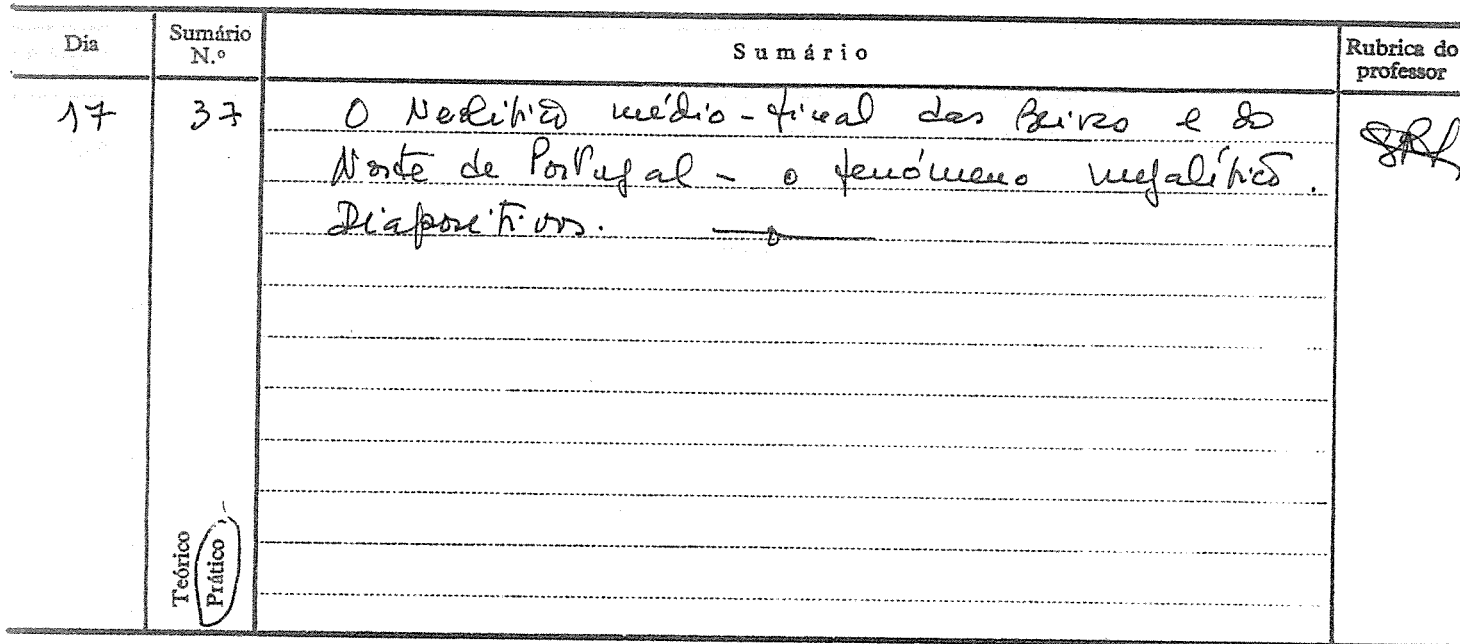 Dia
Sumário N.º
Sumário
Rubrica do professor
17
37
O Neolítico médio-final das Beiras e do
Norte de Portugal - o fenómeno megalítico.
Diapositivos.
Teórico
Prático